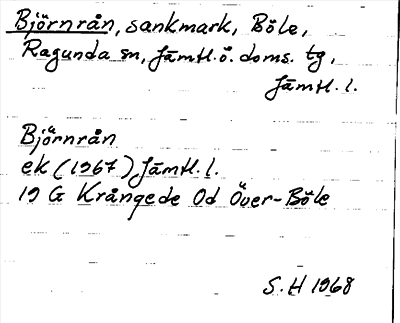 Björnrån, sankmark, Böle,
Ragunda sn, Jämtl. ö. doms. tg,
Jämtl. l.
Björnrån
ek (1967) Jämtl. l.
19 G Krångede Od Över-Böle
S. H 1968